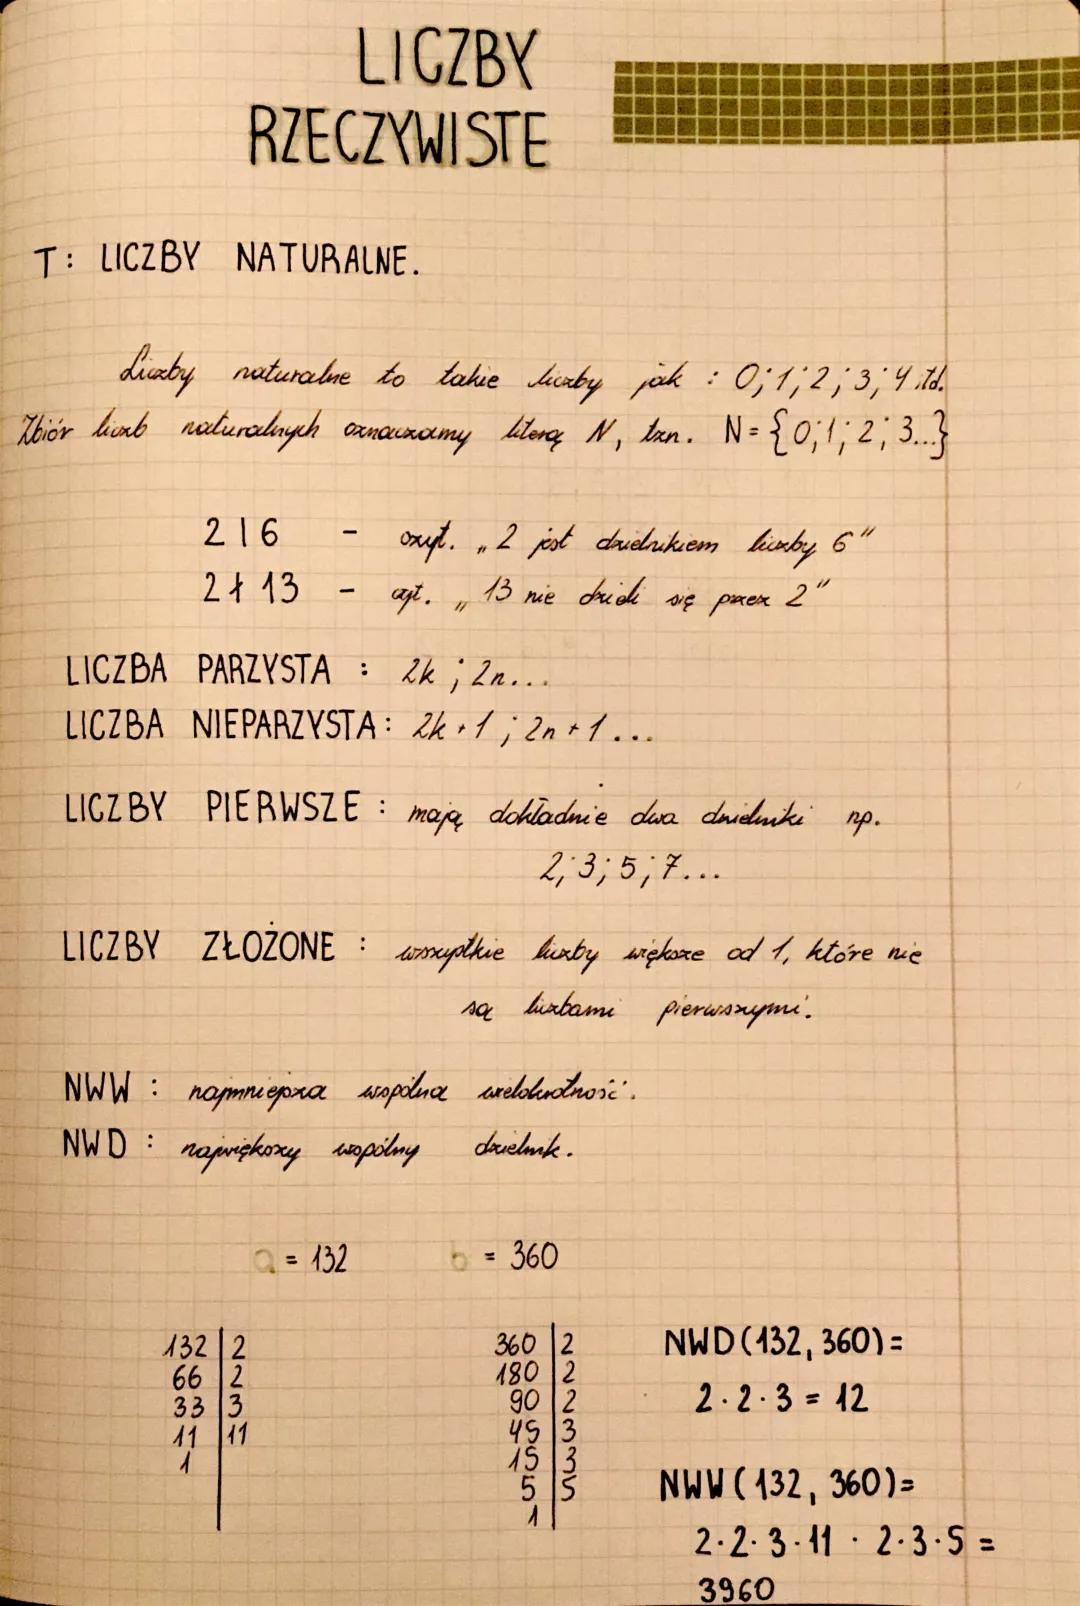 LICZBY
RZECZYWISTE
T: LICZBY NATURALNE.
Liczby naturalne to takie liczby jak : 0; 1; 2; 3; 4 itd.
Zbiór liczb naturalnych oznaczamy literą N, tzn. N = {0; 1; 2; 3...}
2 | 6 - czyt. „2 jest dzielnikiem liczby 6"
2 ∤ 13 - czyt. „13 nie dzieli się przez 2"
LICZBA PARZYSTA : 2k ; 2n...
LICZBA NIEPARZYSTA: 2k + 1 ; 2n + 1 ...
LICZBY PIERWSZE : mają dokładnie dwa dzielniki np.
2; 3; 5; 7...
LICZBY ZŁOŻONE : wszystkie liczby większe od 1, które nie
są liczbami pierwszymi.
NWW : najmniejsza wspólna wielokrotność.
NWD : największy wspólny dzielnik.
a = 132 b = 360
132 | 2
66 | 2
33 | 3
11 | 11
1
360 | 2
180 | 2
90 | 2
45 | 3
15 | 3
5 | 5
1
NWD (132, 360) =
2 · 2 · 3 = 12
NWW (132, 360) =
2 · 2 · 3 · 11 · 2 · 3 · 5 =
3960